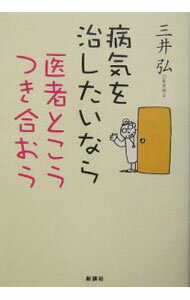 病気を
治したいなら
医者とこう
つき合おう
三井弘
新講社